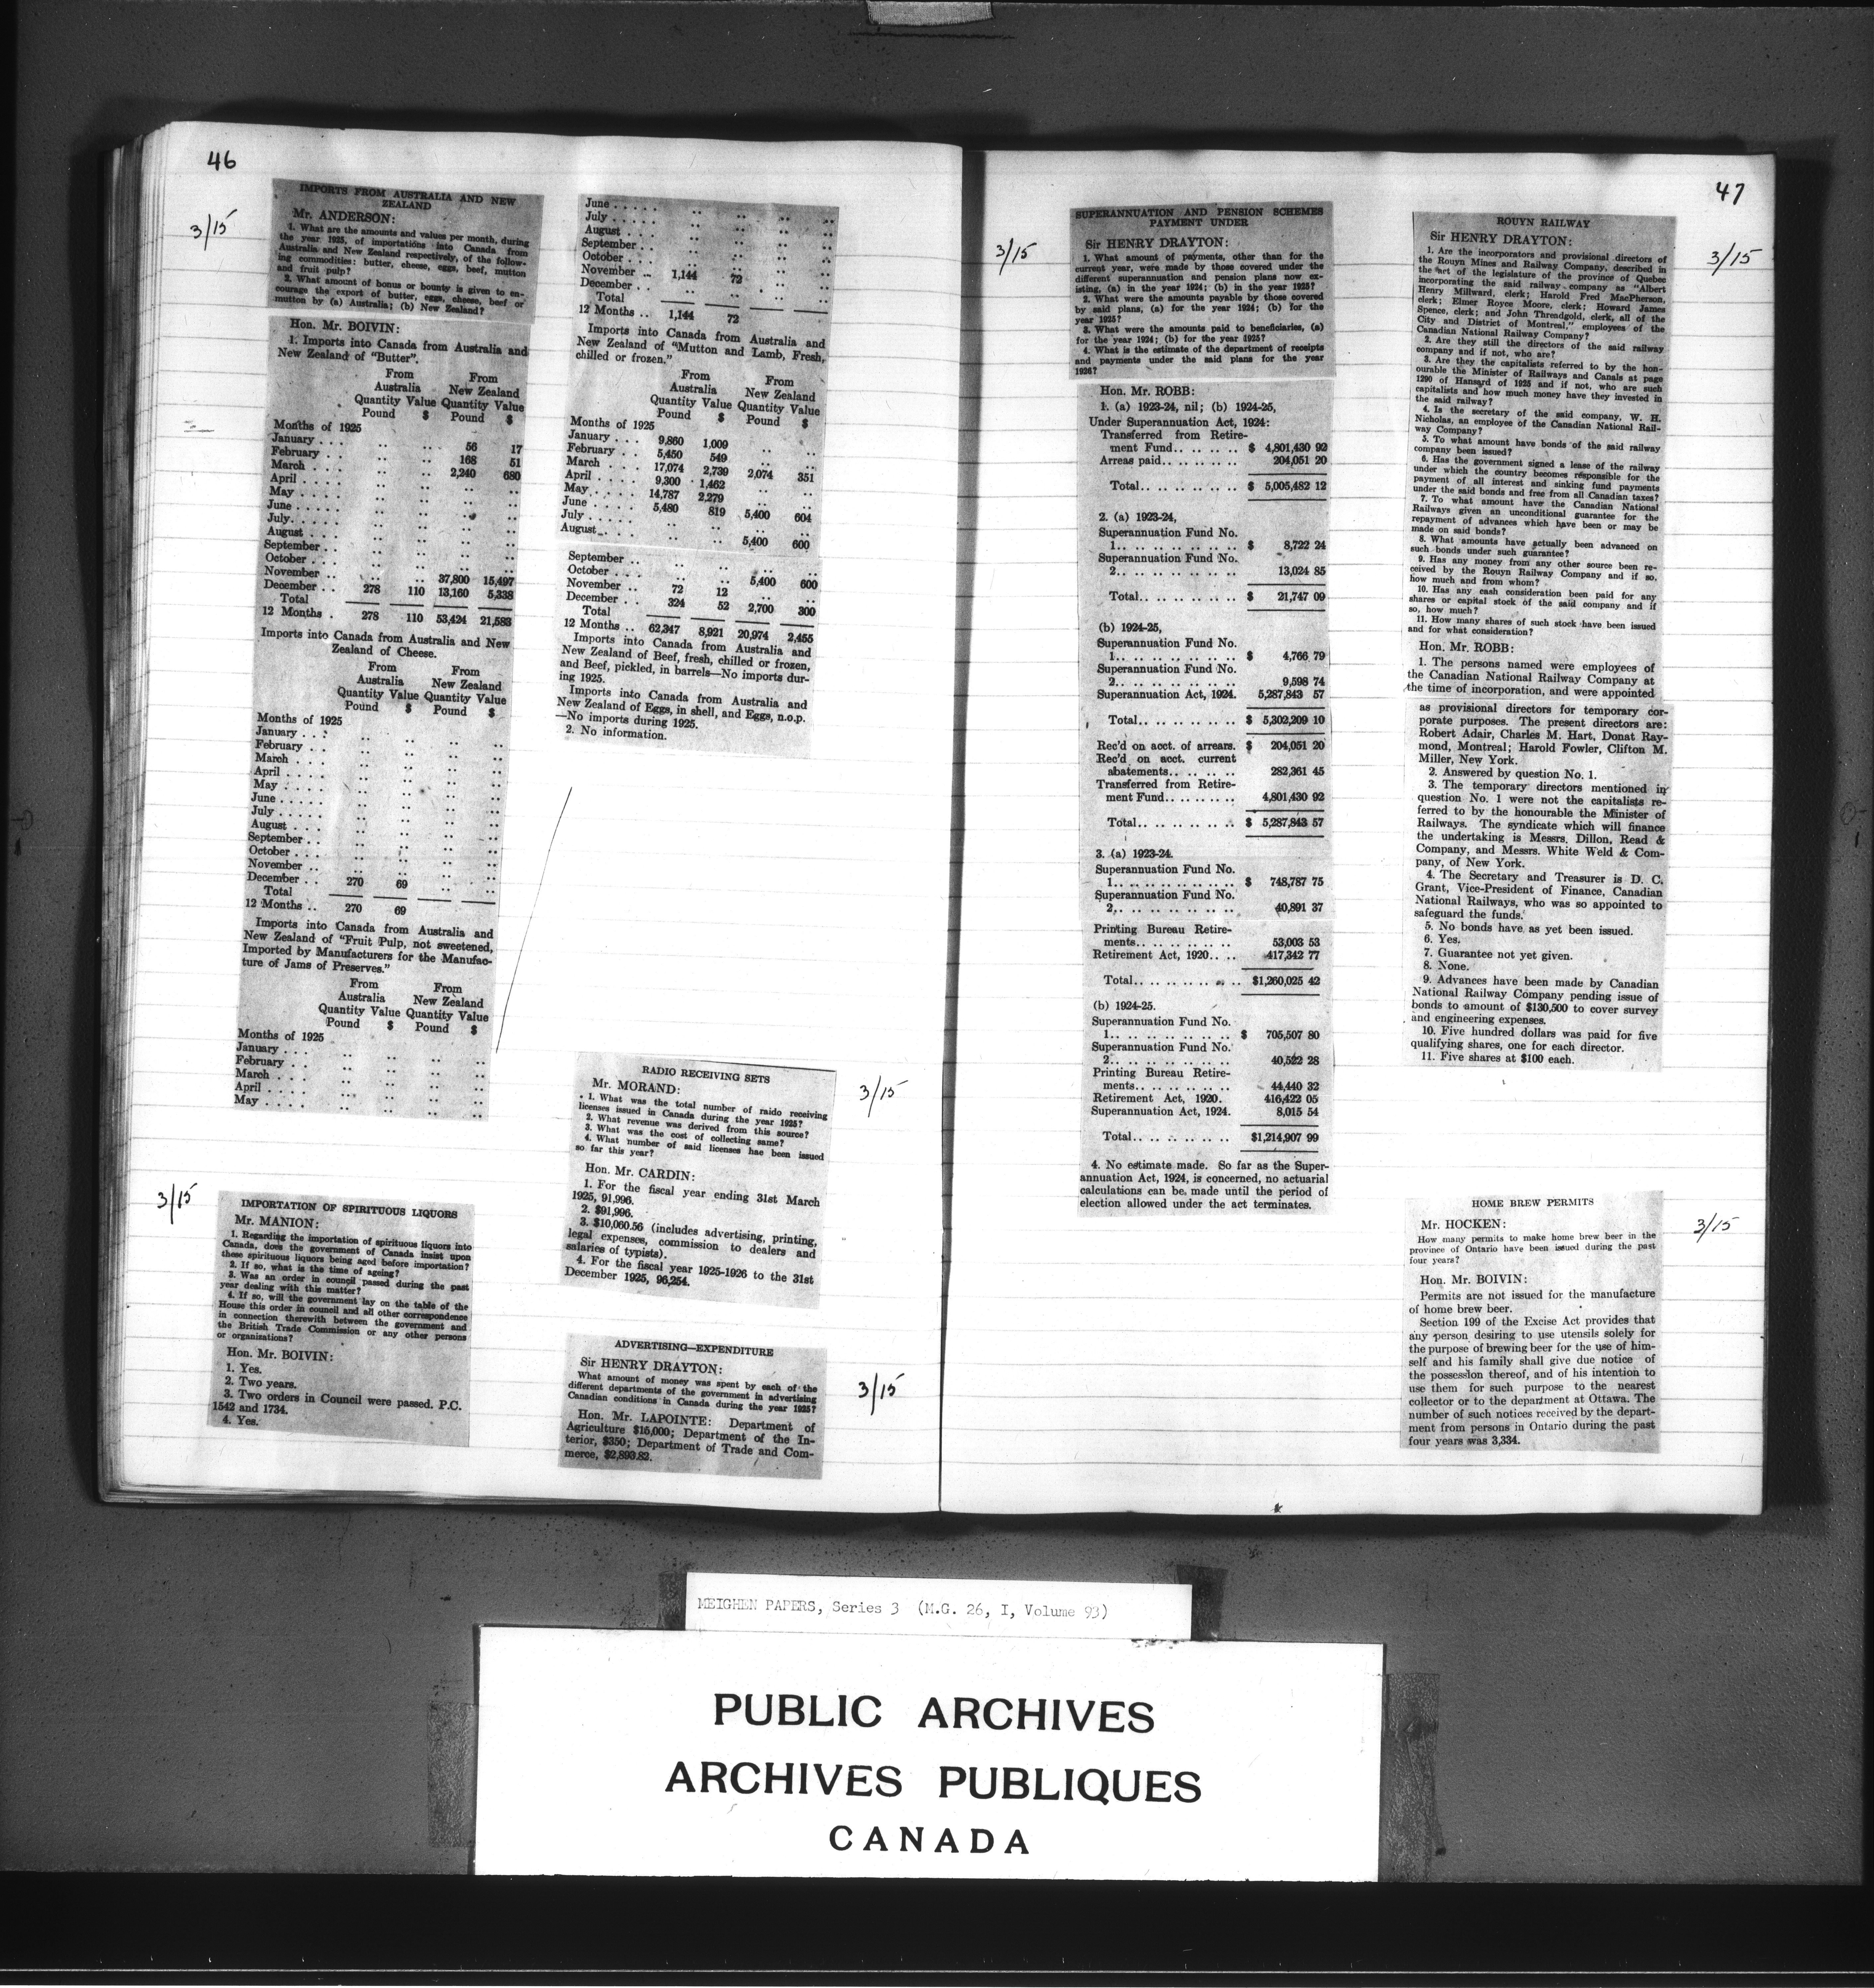 46
3/15
IMPORTS FROM AUSTRALIA AND NEW
ZEALAND
Mr. ANDERSON:
1. What are the amounts and values per month, during
the year 1925, of importations into Canada from
Australia and New Zealand respectively, of the follow-
ing commodities: butter, cheese, eggs, beef, mutton
and fruit pulp?
2. What amount of bonus or bounty is given to en-
courage the export of butter, eggs, cheese, beef or
mutton by (a) Australia; (b) New Zealand?
Hon. Mr. BOIVIN:
1. Imports into Canada from Australia and
New Zealand of "Butter".
From From
Australia New Zealand
Quantity Value Quantity Value
Pound $ Pound $
Months of 1925
January . . . .. .. 56 17
February . . .. .. 168 51
March . . . .. .. 2,240 680
April . . . . .. .. .. ..
May . . . . . .. .. .. ..
June . . . . . .. .. .. ..
July. . . . . .. .. .. ..
August . . . .. .. .. ..
September . . .. .. .. ..
October . . . .. .. .. ..
November . . .. .. 37,800 15,497
December . . 278 110 13,160 5,338
Total
12 Months . 278 110 53,424 21,583
Imports into Canada from Australia and New
Zealand of Cheese.
From From
Australia New Zealand
Quantity Value Quantity Value
Pound $ Pound $
Months of 1925
January . . . .. .. .. ..
February . . . .. .. .. ..
March . . . .. .. .. ..
April . . . . .. .. .. ..
May . . . . . .. .. .. ..
June . . . . . .. .. .. ..
July . . . . . .. .. .. ..
August . . . . .. .. .. ..
September . . .. .. .. ..
October . . . .. .. .. ..
November . . .. .. .. ..
December . . 270 69 .. ..
Total
12 Months .. 270 69
Imports into Canada from Australia and
New Zealand of "Fruit Pulp, not sweetened,
Imported by Manufacturers for the Manufac-
ture of Jams of Preserves."
From From
Australia New Zealand
Quantity Value Quantity Value
Pound $ Pound $
Months of 1925
January . . . .. .. .. ..
February . . . .. .. .. ..
March . . . .. .. .. ..
April . . . . .. .. .. ..
May . . . . .. .. .. ..
June . . . . . .. .. .. ..
July . . . . . .. .. .. ..
August . . . . .. .. .. ..
September . . .. .. .. ..
October . . . .. .. .. ..
November .. 1,144 72 .. ..
December . . .. .. .. ..
Total
12 Months .. 1,144 72
Imports into Canada from Australia and
New Zealand of "Mutton and Lamb, Fresh,
chilled or frozen."
From From
Australia New Zealand
Quantity Value Quantity Value
Pound $ Pound $
Months of 1925
January . . . 9,860 1,009 .. ..
February . . 5,450 549 .. ..
March . . . 17,074 2,739 2,074 351
April . . . . 9,300 1,462 .. ..
May. . . . . 14,787 2,279 .. ..
June . . . . 5,480 819 5,400 604
July . . . . .. .. .. ..
August. . . .. .. 5,400 600
September . . .. .. .. ..
October . . . .. .. 5,400 600
November . . 72 12 .. ..
December . . 324 52 2,700 300
Total
12 Months .. 62,347 8,921 20,974 2,455
Imports into Canada from Australia and
New Zealand of Beef, fresh, chilled or frozen,
and Beef, pickled, in barrels—No imports dur-
ing 1925.
Imports into Canada from Australia and
New Zealand of Eggs, in shell, and Eggs, n.o.p.
—No imports during 1925.
2. No information.
3/15
IMPORTATION OF SPIRITUOUS LIQUORS
Mr. MANION:
1. Regarding the importation of spirituous liquors into
Canada, does the government of Canada insist upon
these spirituous liquors being aged before importation?
2. If so, what is the time of ageing?
3. Was an order in council passed during the past
year dealing with this matter?
4. If so, will the government lay on the table of the
House this order in council and all other correspondence
in connection therewith between the government and
the British Trade Commission or any other persons
or organizations?
Hon. Mr. BOIVIN:
1. Yes.
2. Two years.
3. Two orders in Council were passed. P.C.
1542 and 1734.
4. Yes.
3/15
RADIO RECEIVING SETS
Mr. MORAND:
1. What was the total number of raido receiving
licenses issued in Canada during the year 1925?
2. What revenue was derived from this source?
3. What was the cost of collecting same?
4. What number of said licenses hae been issued
so far this year?
Hon. Mr. CARDIN:
1. For the fiscal year ending 31st March
1925, 91,996.
2. $91,996.
3. $10,060.56 (includes advertising, printing,
legal expenses, commission to dealers and
salaries of typists).
4. For the fiscal year 1925-1926 to the 31st
December 1925, 96,254.
3/15
ADVERTISING—EXPENDITURE
Sir HENRY DRAYTON:
What amount of money was spent by each of the
different departments of the government in advertising
Canadian conditions in Canada during the year 1925?
Hon. Mr. LAPOINTE: Department of
Agriculture $15,000; Department of the In-
terior, $350; Department of Trade and Com-
merce, $2,893.82.
47
3/15
SUPERANNUATION AND PENSION SCHEMES
PAYMENT UNDER
Sir HENRY DRAYTON:
1. What amount of payments, other than for the
current year, were made by those covered under the
different superannuation and pension plans now ex-
isting, (a) in the year 1924; (b) in the year 1925?
2. What were the amounts payable by those covered
by said plans, (a) for the year 1924; (b) for the
year 1925?
3. What were the amounts paid to beneficiaries, (a)
for the year 1924; (b) for the year 1925?
4. What is the estimate of the department of receipts
and payments under the said plans for the year
1926?
Hon. Mr. ROBB:
1. (a) 1923-24, nil; (b) 1924-25,
Under Superannuation Act, 1924:
Transferred from Retire-
ment Fund.. .. .. .. $ 4,801,430 92
Arreas paid.. .. .. .. 204,051 20
Total.. .. .. .. .. $ 5,005,482 12
2. (a) 1923-24,
Superannuation Fund No.
1.. .. .. .. .. .. $ 8,722 24
Superannuation Fund No.
2.. .. .. .. .. .. 13,024 85
Total.. .. .. .. .. $ 21,747 09
(b) 1924-25,
Superannuation Fund No.
1.. .. .. .. .. .. $ 4,766 79
Superannuation Fund No.
2.. .. .. .. .. .. 9,598 74
Superannuation Act, 1924. 5,287,843 57
Total.. .. .. .. .. $ 5,302,209 10
Rec'd on acct. of arrears. $ 204,051 20
Rec'd on acct. current
abatements.. .. .. .. 282,361 45
Transferred from Retire-
ment Fund.. .. .. .. 4,801,430 92
Total.. .. .. .. .. $ 5,287,843 57
3. (a) 1923-24.
Superannuation Fund No.
1.. .. .. .. .. .. $ 748,787 75
Superannuation Fund No.
2.. .. .. .. .. .. 40,891 37
Printing Bureau Retire-
ments.. .. .. .. .. 53,003 53
Retirement Act, 1920.. .. 417,342 77
Total.. .. .. .. .. $1,260,025 42
(b) 1924-25.
Superannuation Fund No.
1.. .. .. .. .. .. $ 705,507 80
Superannuation Fund No.
2.. .. .. .. .. .. 40,522 28
Printing Bureau Retire-
ments.. .. .. .. .. 44,440 32
Retirement Act, 1920. 416,422 05
Superannuation Act, 1924. 8,015 54
Total.. .. .. .. .. $1,214,907 99
4. No estimate made. So far as the Super-
annuation Act, 1924, is concerned, no actuarial
calculations can be made until the period of
election allowed under the act terminates.
3/15
ROUYN RAILWAY
Sir HENRY DRAYTON:
1. Are the incorporators and provisional directors of
the Rouyn Mines and Railway Company, described in
the act of the legislature of the province of Quebec
incorporating the said railway company as "Albert
Henry Millward, clerk; Harold Fred MacPherson,
clerk; Elmer Royce Moore, clerk; Howard James
Spence, clerk; and John Threndgold, clerk, all of the
City and District of Montreal," employees of the
Canadian National Railway Company?
2. Are they still the directors of the said railway
company and if not, who are?
3. Are they the capitalists referred to by the hon-
ourable the Minister of Railways and Canals at page
1290 of Hansard of 1925 and if not, who are such
capitalists and how much money have they invested in
the said railway?
4. Is the secretary of the said company, W. H.
Nicholas, an employee of the Canadian National Rail-
way Company?
5. To what amount have bonds of the said railway
company been issued?
6. Has the government signed a lease of the railway
under which the country becomes responsible for the
payment of all interest and sinking fund payments
under the said bonds and free from all Canadian taxes?
7. To what amount have the Canadian National
Railways given an unconditional guarantee for the
repayment of advances which have been or may be
made on said bonds?
8. What amounts have actually been advanced on
such bonds under such guarantee?
9. Has any money from any other source been re-
ceived by the Rouyn Railway Company and if so,
how much and from whom?
10. Has any cash consideration been paid for any
shares or capital stock of the said company and if
so, how much?
11. How many shares of such stock have been issued
and for what consideration?
Hon. Mr. ROBB:
1. The persons named were employees of
the Canadian National Railway Company at
the time of incorporation, and were appointed
as provisional directors for temporary cor-
porate purposes. The present directors are:
Robert Adair, Charles M. Hart, Donat Ray-
mond, Montreal; Harold Fowler, Clifton M.
Miller, New York.
2. Answered by question No. 1.
3. The temporary directors mentioned in
question No. 1 were not the capitalists re-
ferred to by the honourable the Minister of
Railways. The syndicate which will finance
the undertaking is Messrs. Dillon, Read &
Company, and Messrs. White Weld & Com-
pany, of New York.
4. The Secretary and Treasurer is D. C.
Grant, Vice-President of Finance, Canadian
National Railways, who was so appointed to
safeguard the funds.
5. No bonds have as yet been issued.
6. Yes.
7. Guarantee not yet given.
8. None.
9. Advances have been made by Canadian
National Railway Company pending issue of
bonds to amount of $130,500 to cover survey
and engineering expenses.
10. Five hundred dollars was paid for five
qualifying shares, one for each director.
11. Five shares at $100 each.
3/15
HOME BREW PERMITS
Mr. HOCKEN:
How many permits to make home brew beer in the
province of Ontario have been issued during the past
four years?
Hon. Mr. BOIVIN:
Permits are not issued for the manufacture
of home brew beer.
Section 199 of the Excise Act provides that
any person desiring to use utensils solely for
the purpose of brewing beer for the use of him-
self and his family shall give due notice of
the possession thereof, and of his intention to
use them for such purpose to the nearest
collector or to the department at Ottawa. The
number of such notices received by the depart-
ment from persons in Ontario during the past
four years was 3,334.
MEIGHEN PAPERS, Series 3 (M.G. 26, I, Volume 93)
PUBLIC ARCHIVES
ARCHIVES PUBLIQUES
CANADA